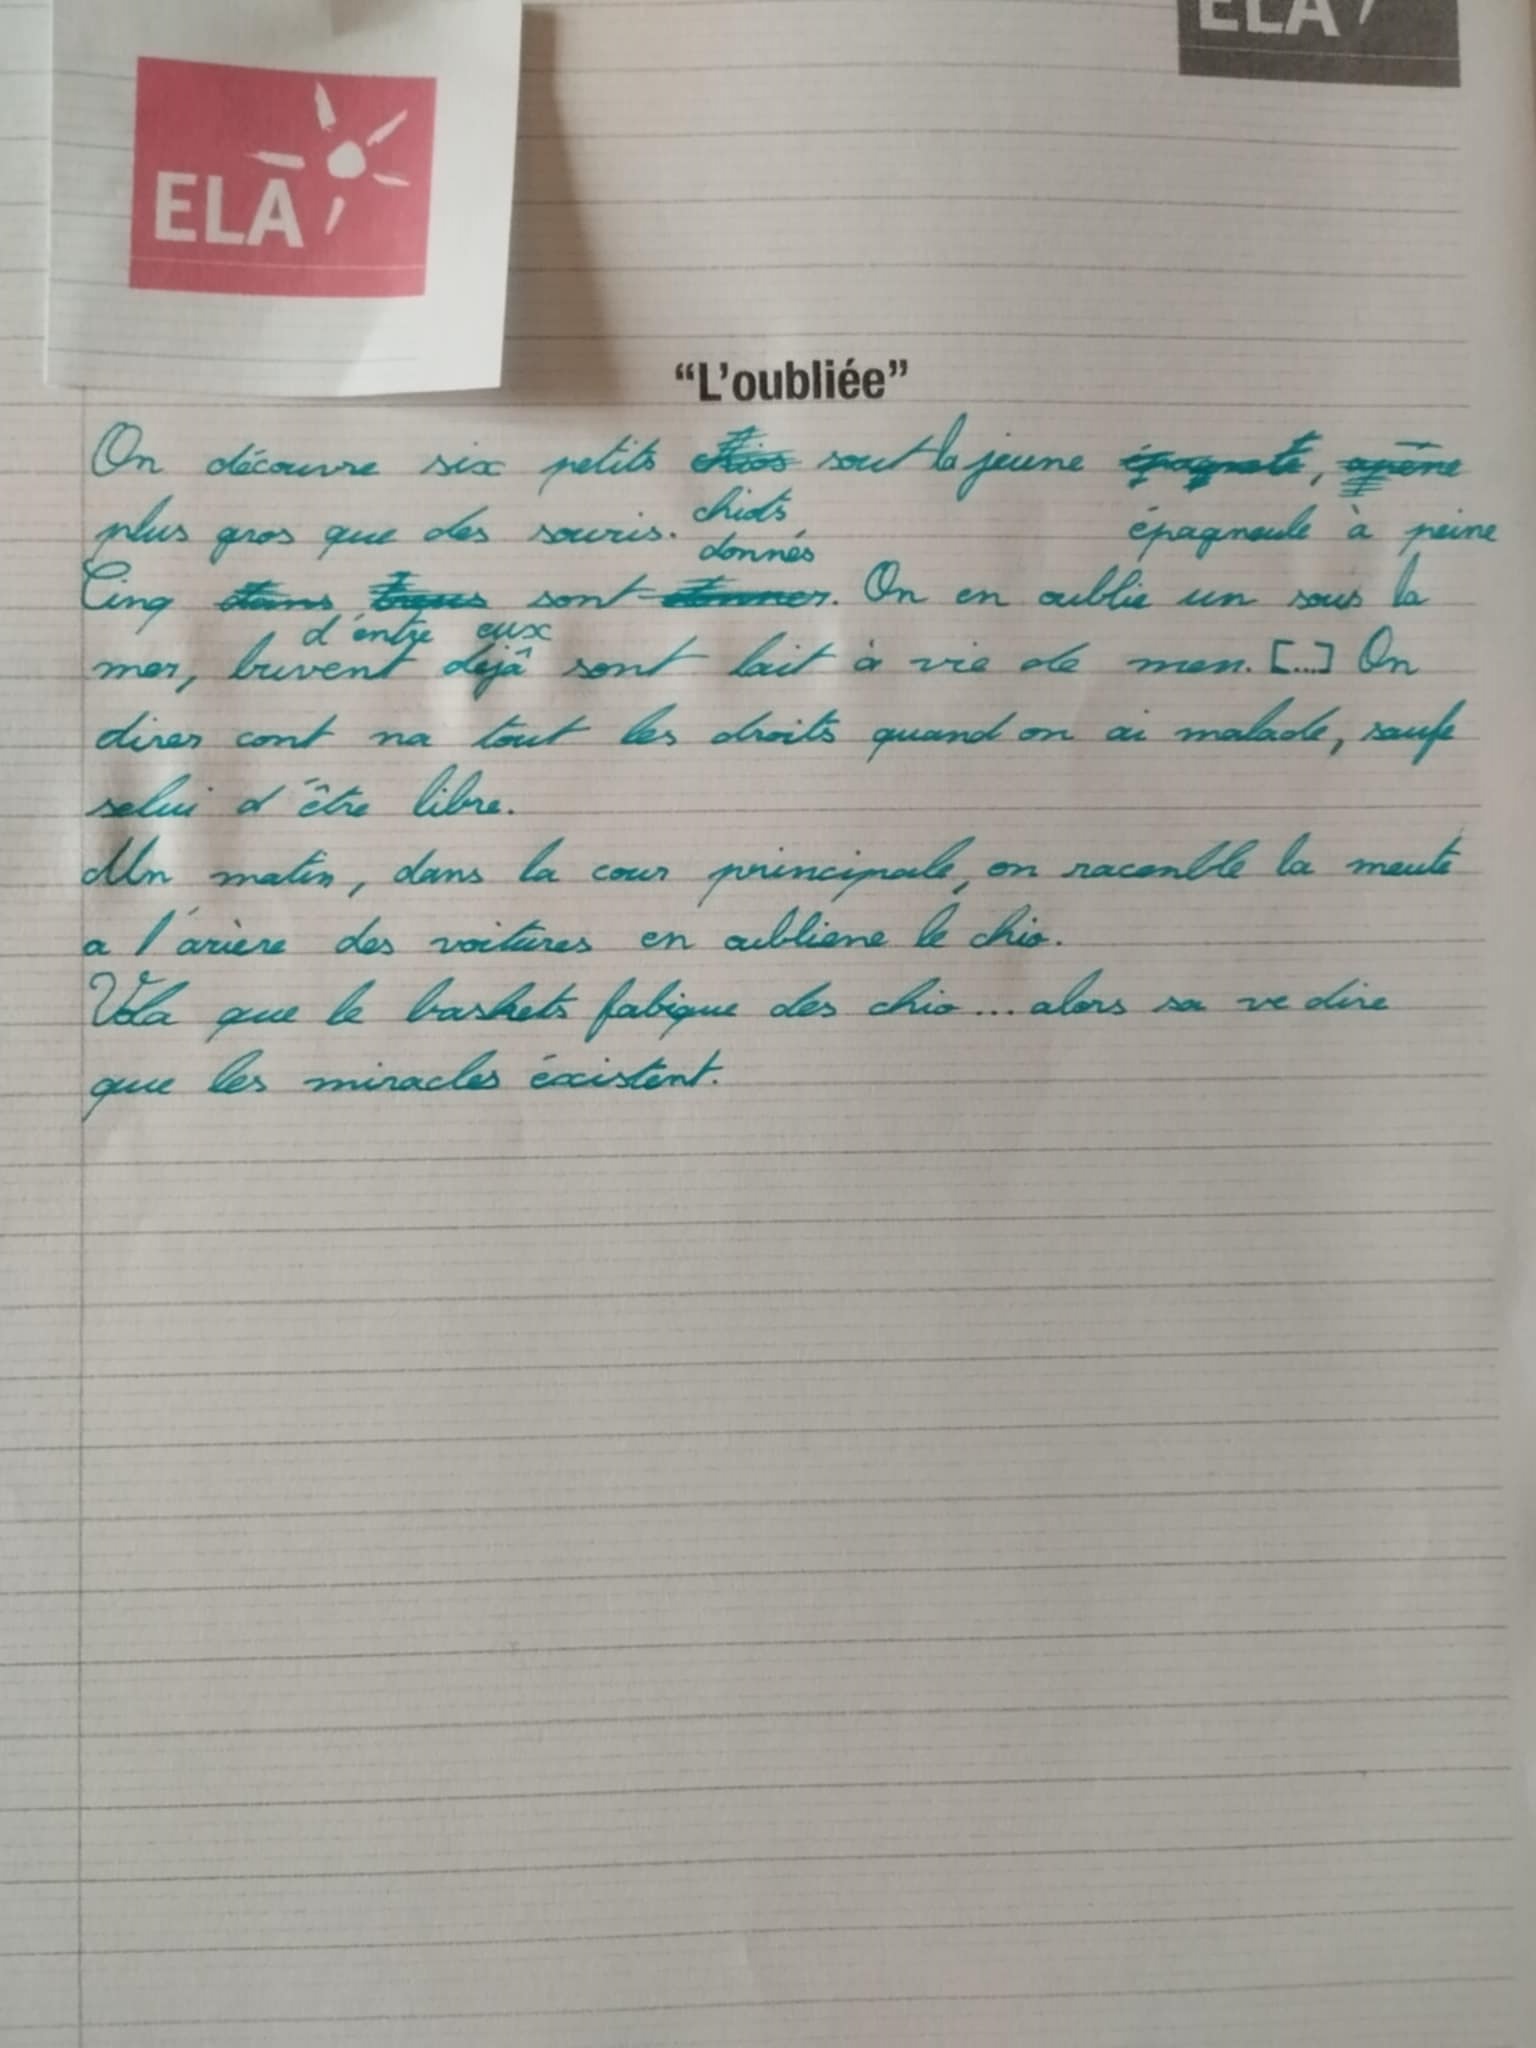 ELA
ELA
“L’oubliée”
On découvre six petits chios sout la jeune épagnete, apène
plus gros que des souris. chiots épagneule à peine
donnés
Cinq sont donner. On en oublie un sous la
d'entre eux
mer, buvent dejâ sont lait à vie de men. [...] On
dires cont na tout les droits quand on ai malade, saufe
selui d'être libre.
Un matin, dans la cour principale, on racenble la meute
a l'arière des voitures en oubliene le chio.
Vola que le baskets fabique des chio... alors sa ve dire
que les miracles éxistent.